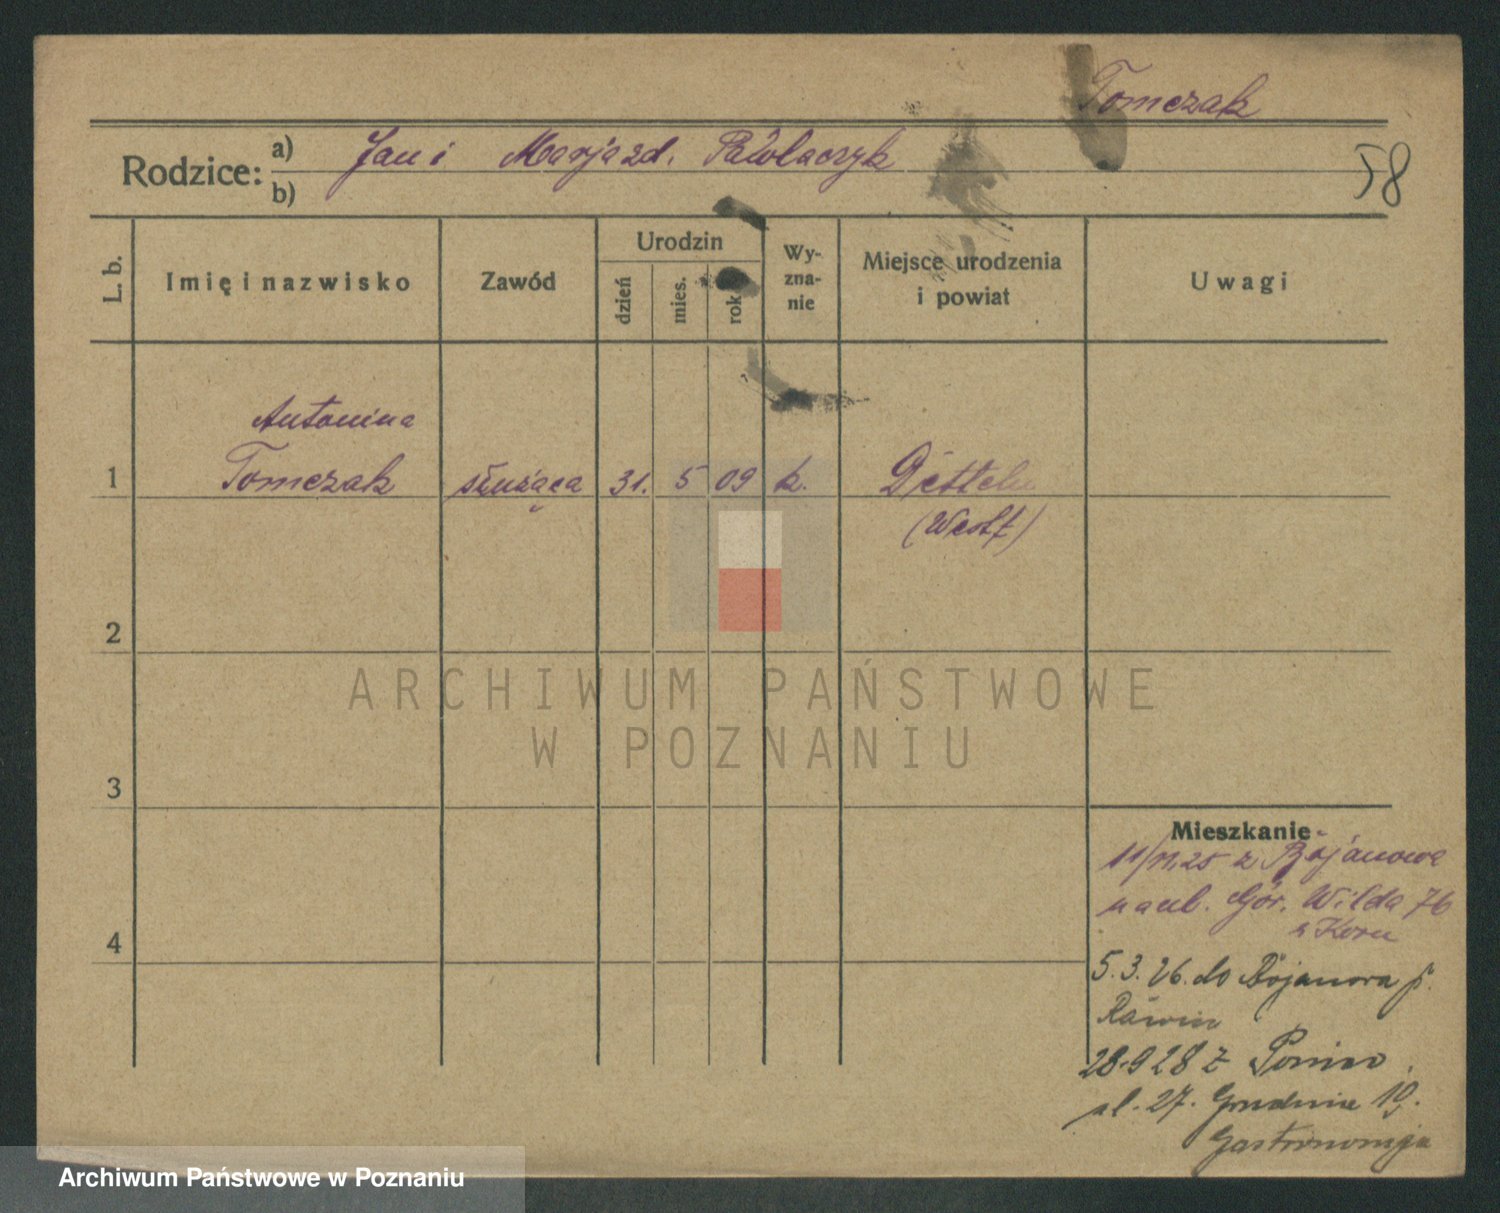 Tomczak
Rodzice: a) Jan i Marja zd. Pawlaczyk
b)
58
L. b.
Imię i nazwisko
Zawód
Urodzin
dzień
mies.
rok
Wy-
zna-
nie
Miejsce urodzenia
i powiat
Uwagi
Antonina
1 Tomczak służąca 31. 5 09 k.
(Westf)
2
3
4
ARCHIWUM PAŃSTWOWE
W POZNANIU
Mieszkanie
z Bojanowa
na ul. Gór. Wilda 76
5.3.26. do Bojanowa p.
Rawicz
28.9 28 z
ul. 27. Grudnia 19.
Gastronomja
Archiwum Państwowe w Poznaniu